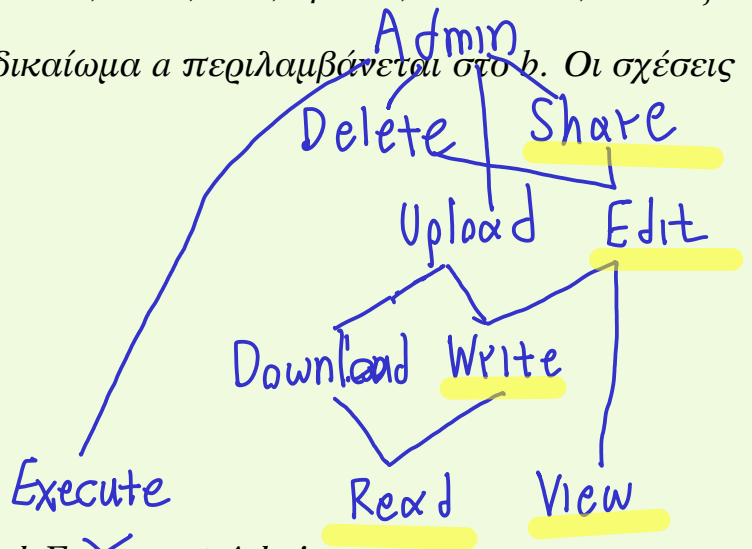 Admin
δικαίωμα a περιλαμβάνεται στο b. Οι σχέσεις
Delete Share
Upload Edit
Download Write
Execute Read View